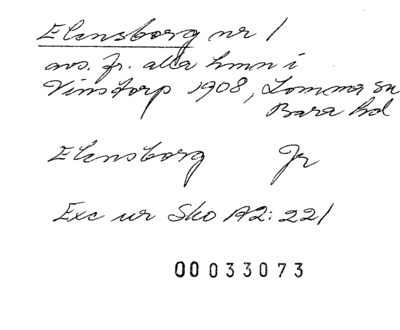 Elensborg nr 1
avs. fr. alla hmn i
Vinstorp 1908, Lomma sn
Bara hd
Elensborg Jr
Exc ur Sko A2: 221
00033073